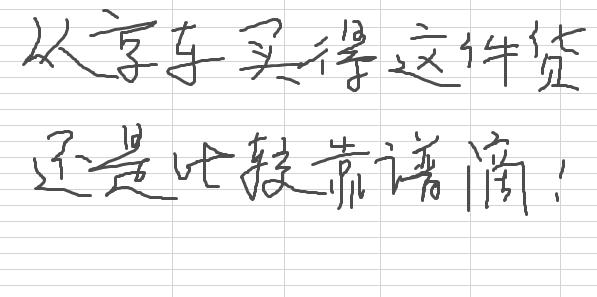 从京东买得这件货
还是比较靠谱滴!